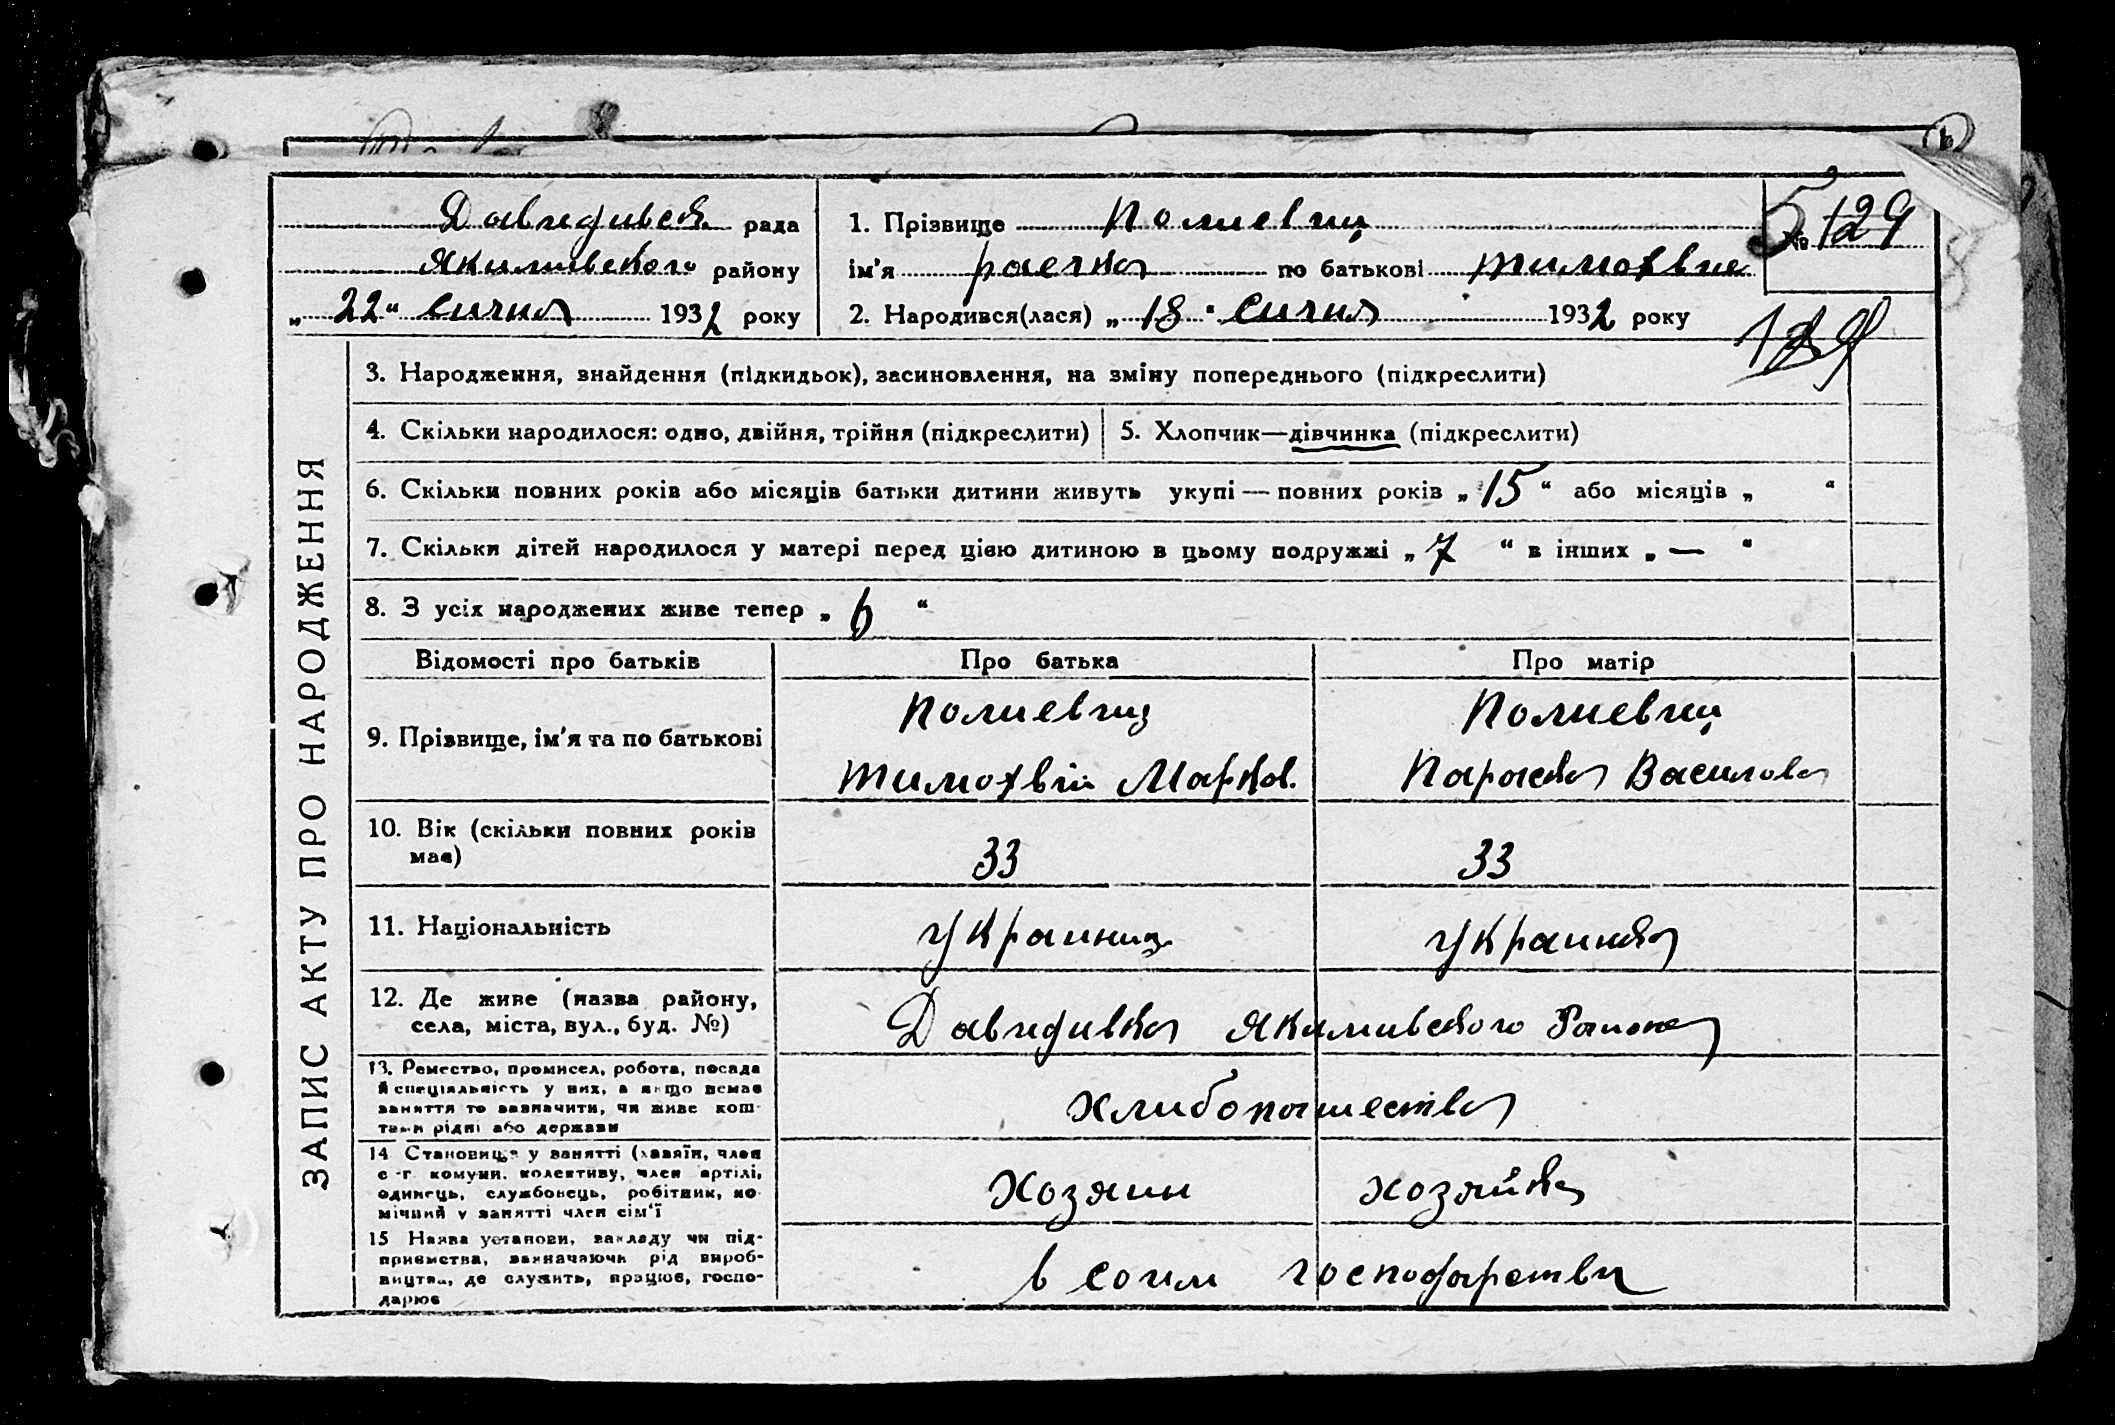 Давидивск. рада
Якимивского району
„22“ сичня 1932 року
1. Прізвище Полиевиц
ім'я раечка по батькові тимохвие
2. Народився(лася) „18“ сичня 1932 року
5 № 129
129
3. Народження, знайдення (підкидьок), засиновлення, на зміну попереднього (підкреслити)
4. Скільки народилося: одно, двійня, трійня (підкреслити)
5. Хлопчик—дівчинка (підкреслити)
6. Скільки повних років або місяців батьки дитини живуть укупі — повних років „15“ або місяців „ “
7. Скільки дітей народилося у матері перед цією дитиною в цьому подружжі „7“ в інших „—“
8. З усіх народжених живе тепер „6“
ЗАПИС АКТУ ПРО НАРОДЖЕННЯ
Відомості про батьків
Про батька
Про матір
9. Прізвище, ім'я та по батькові
Полиевиц
тимохвій Марков.
Полиевиц
Параска Василова
10. Вік (скільки повних років
має)
33
33
11. Національність
украиниц
украинка
12. Де живе (назва району,
села, міста, вул., буд. №)
Давидивка Якимивского Района
13. Ремество, промисел, робота, посада
й спеціяльність у них, а якщо немає
заняття то зазначити, чи живе кош-
тами рідні або держави
хлибопашества
14 Становище у занятті (хазяїн, член
с.-г. комуни, колективу, член артілі,
одинець, службовець, робітник, по-
мічний у занятті член сім'ї
хозяин
хозяйка
15 Назва установи, закладу чи під-
приємства, зазначаючи рід вироб-
ництва, де служить, працює, госпо-
дарює
в соим господарстви